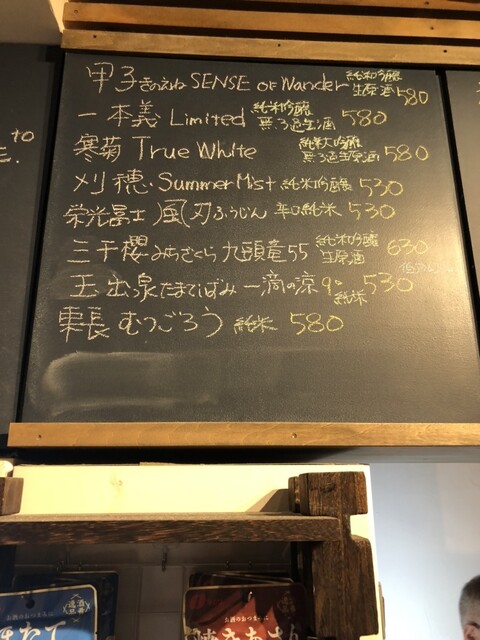 甲子きのえね SENSE OF Wander 純米吟醸 生原酒 580
一本義 Limited 純米吟醸 無ろ過生酒 580
寒菊 True White 純米大吟醸 無ろ過生原酒 580
刈穂 Summer Mist 純米吟醸 530
栄光冨士 風刃ふうじん 辛口純米 530
三千櫻みちざくら 九頭竜55 純米吟醸 生原酒 630
玉出泉たまてばみ 一滴の涼 9° 純米 530
東長 むつごろう 純米 580
to
お酒のおつまみに
お酒のおつまみに